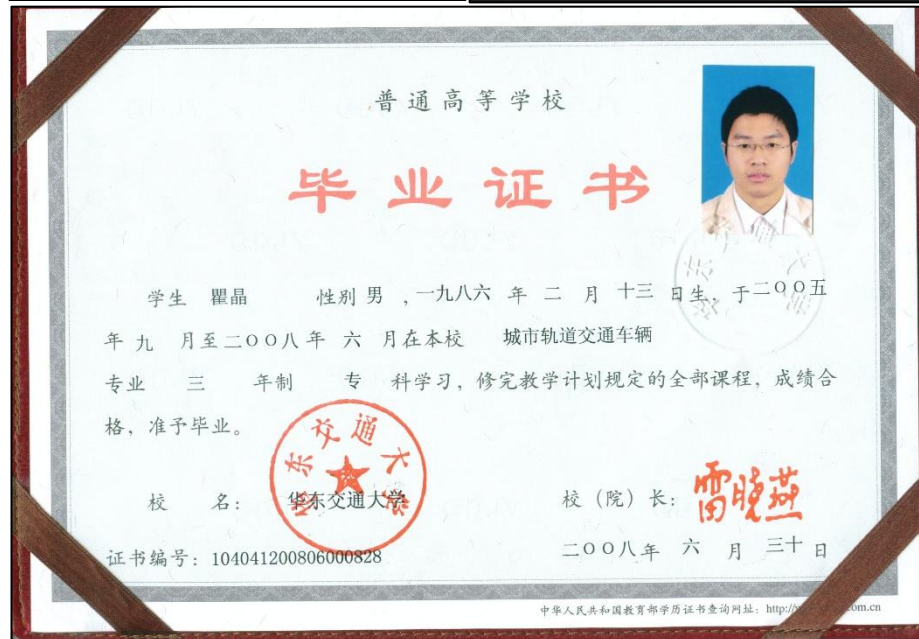 普通高等学校
毕业证书
学生 瞿晶 性别 男 ,一九八六 年 二 月 十三 日生, 于二〇〇五
年 九 月至二〇〇八年 六 月在本校 城市轨道交通车辆
专业 三 年制 专 科学习, 修完教学计划规定的全部课程, 成绩合
格, 准予毕业。
华东交通大学
校 名: 华东交通大学 校 (院) 长: 雷晓燕
证书编号: 104041200806000828 二〇〇八年 六 月 三十 日
中华人民共和国教育部学历证书查询网址: http://
om.cn